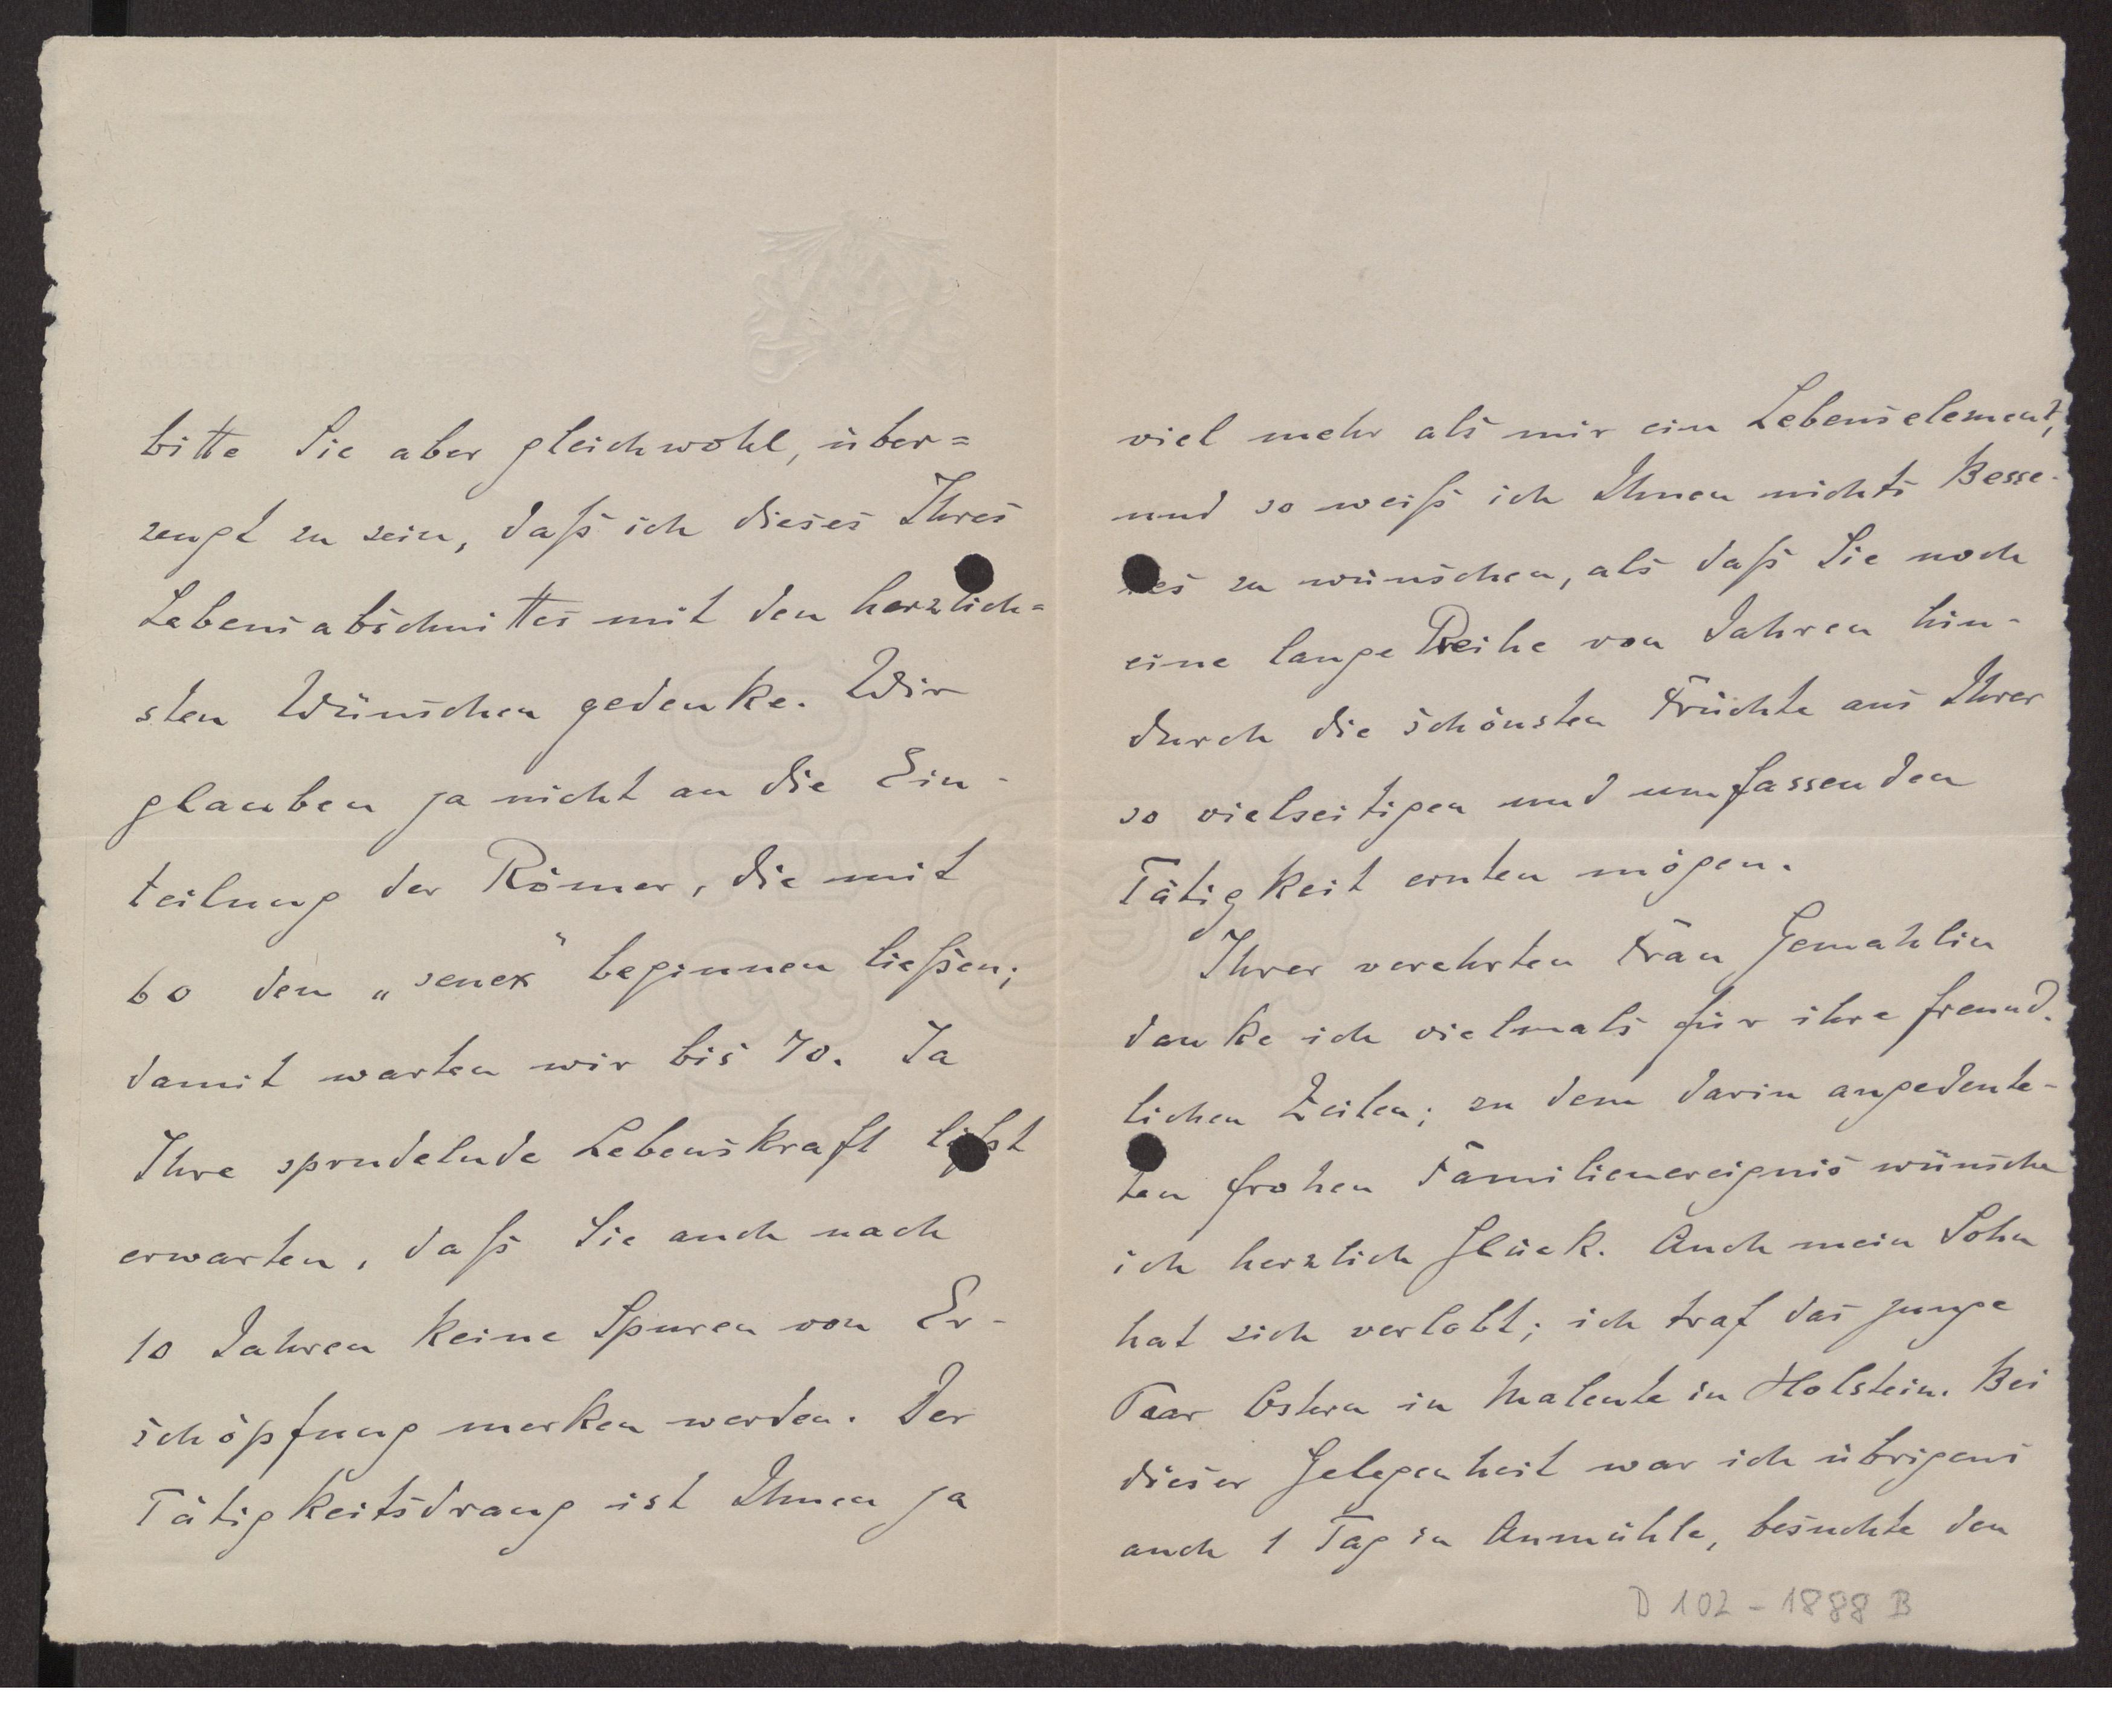 bitte Sie aber gleichwohl, über=
zeugt zu sein, daß ich dieses Ihres
Lebensabschnittes mit den herzlich=
sten Wünschen gedenke. Wir
glauben ja nicht an die Ein-
teilung der Römer, die mit
60 den „senex" beginnen ließen;
damit warten wir bis 70. Ja
Ihre sprudelnde Lebenskraft läßt
erwarten, daß Sie auch nach
10 Jahren keine Spuren von Er-
schöpfung merken werden. Der
Tätigkeitsdrang ist Ihnen ja
viel mehr als mir ein Lebenselement,
und so weiß ich Ihnen nichts Besse-
res zu wünschen, als daß Sie noch
eine lange Reihe von Jahren hin-
durch die schönsten Früchte aus Ihrer
so vielseitigen und umfassenden
Tätigkeit ernten mögen.
Ihrer verehrten Frau Gemahlin
danke ich vielmals für ihre freund-
lichen Zeilen; zu dem darin angedeute-
ten frohen Familienereignis wünsche
ich herzlich Glück. Auch mein Sohn
hat sich verlobt; ich traf das junge
Paar Ostern in Malente in Holstein. Bei
dieser Gelegenheit war ich übrigens
auch 1 Tag in Aumühle, besuchte den
D 102 - 1888 B